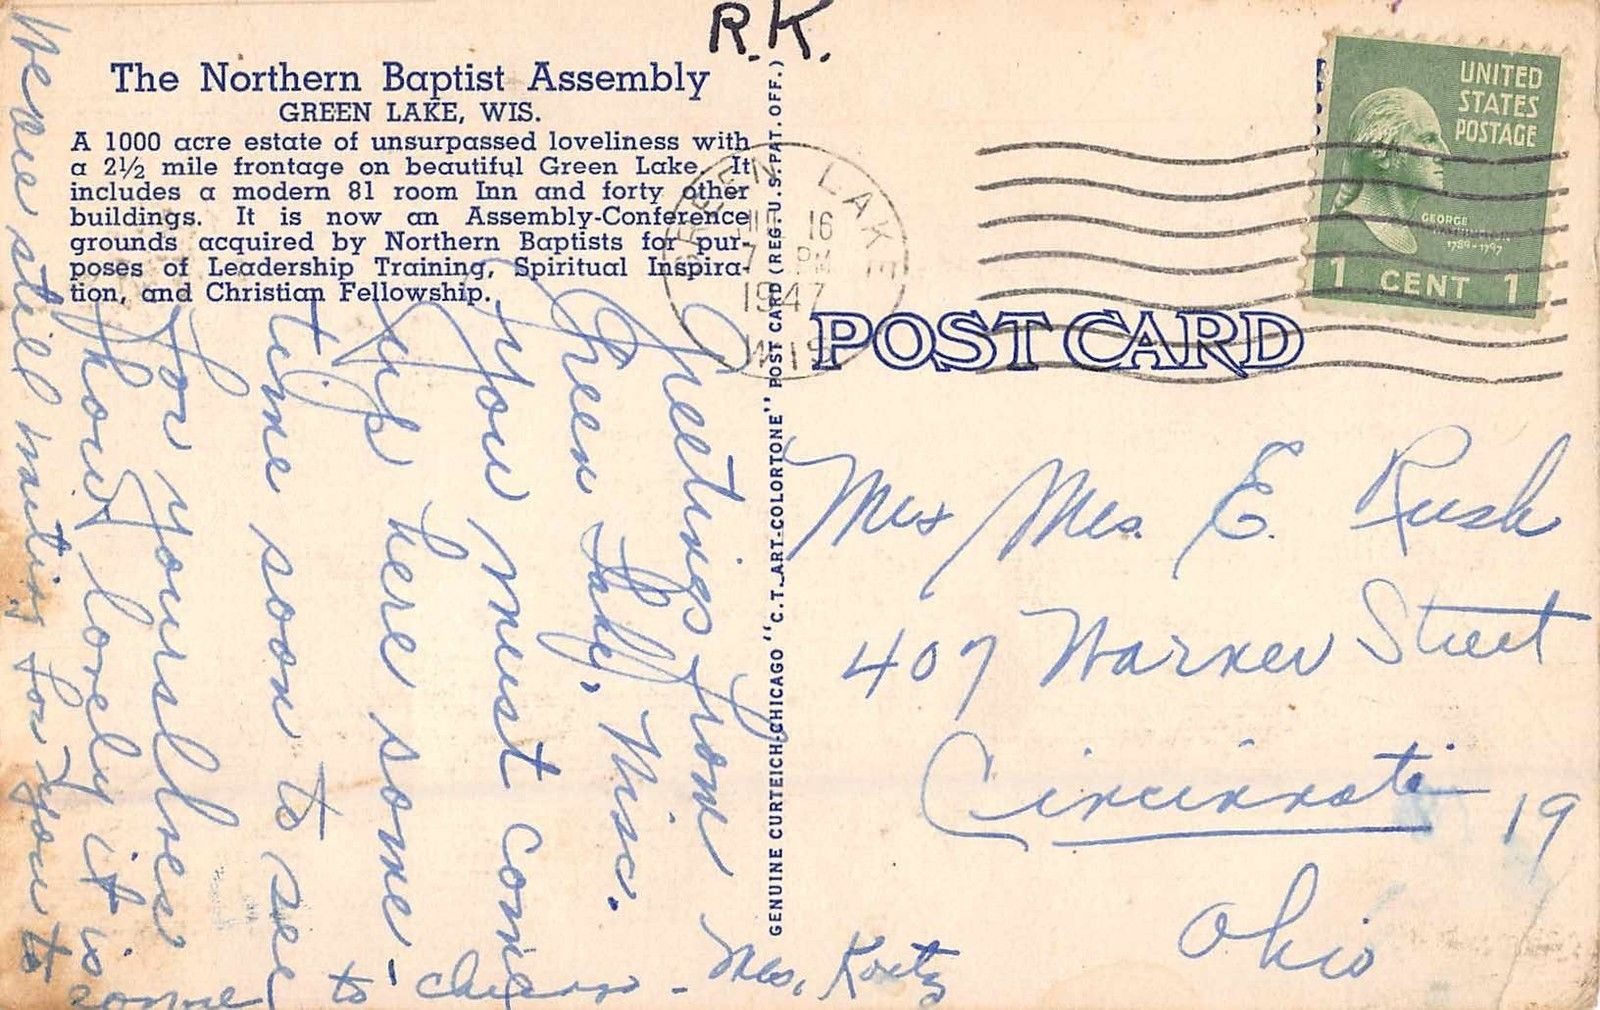 R.K.
The Northern Baptist Assembly
GREEN LAKE, WIS.
A 1000 acre estate of unsurpassed loveliness with
a 2½ mile frontage on beautiful Green Lake. It
includes a modern 81 room Inn and forty other
buildings. It is now an Assembly-Conference
grounds acquired by Northern Baptists for pur-
poses of Leadership Training, Spiritual Inspira-
tion, and Christian Fellowship.
Greetings from
Green Lake, Wisc.
You must come
up here some-
time soon to see
for yourselves
how lovely it is
here still waiting for you to
come to Chicago - Mrs. Kortz
GENUINE CURTEICH-CHICAGO "C.T. ART-COLORTONE" POST CARD (REG. U.S. PAT. OFF.)
GREEN LAKE
16
7 PM
1947
WIS
UNITED
STATES
POSTAGE
GEORGE
WASHINGTON
1789-1797
1 CENT 1
POST CARD
Mrs. E. Rush
407 Warner Street
Cincinnati 19
Ohio